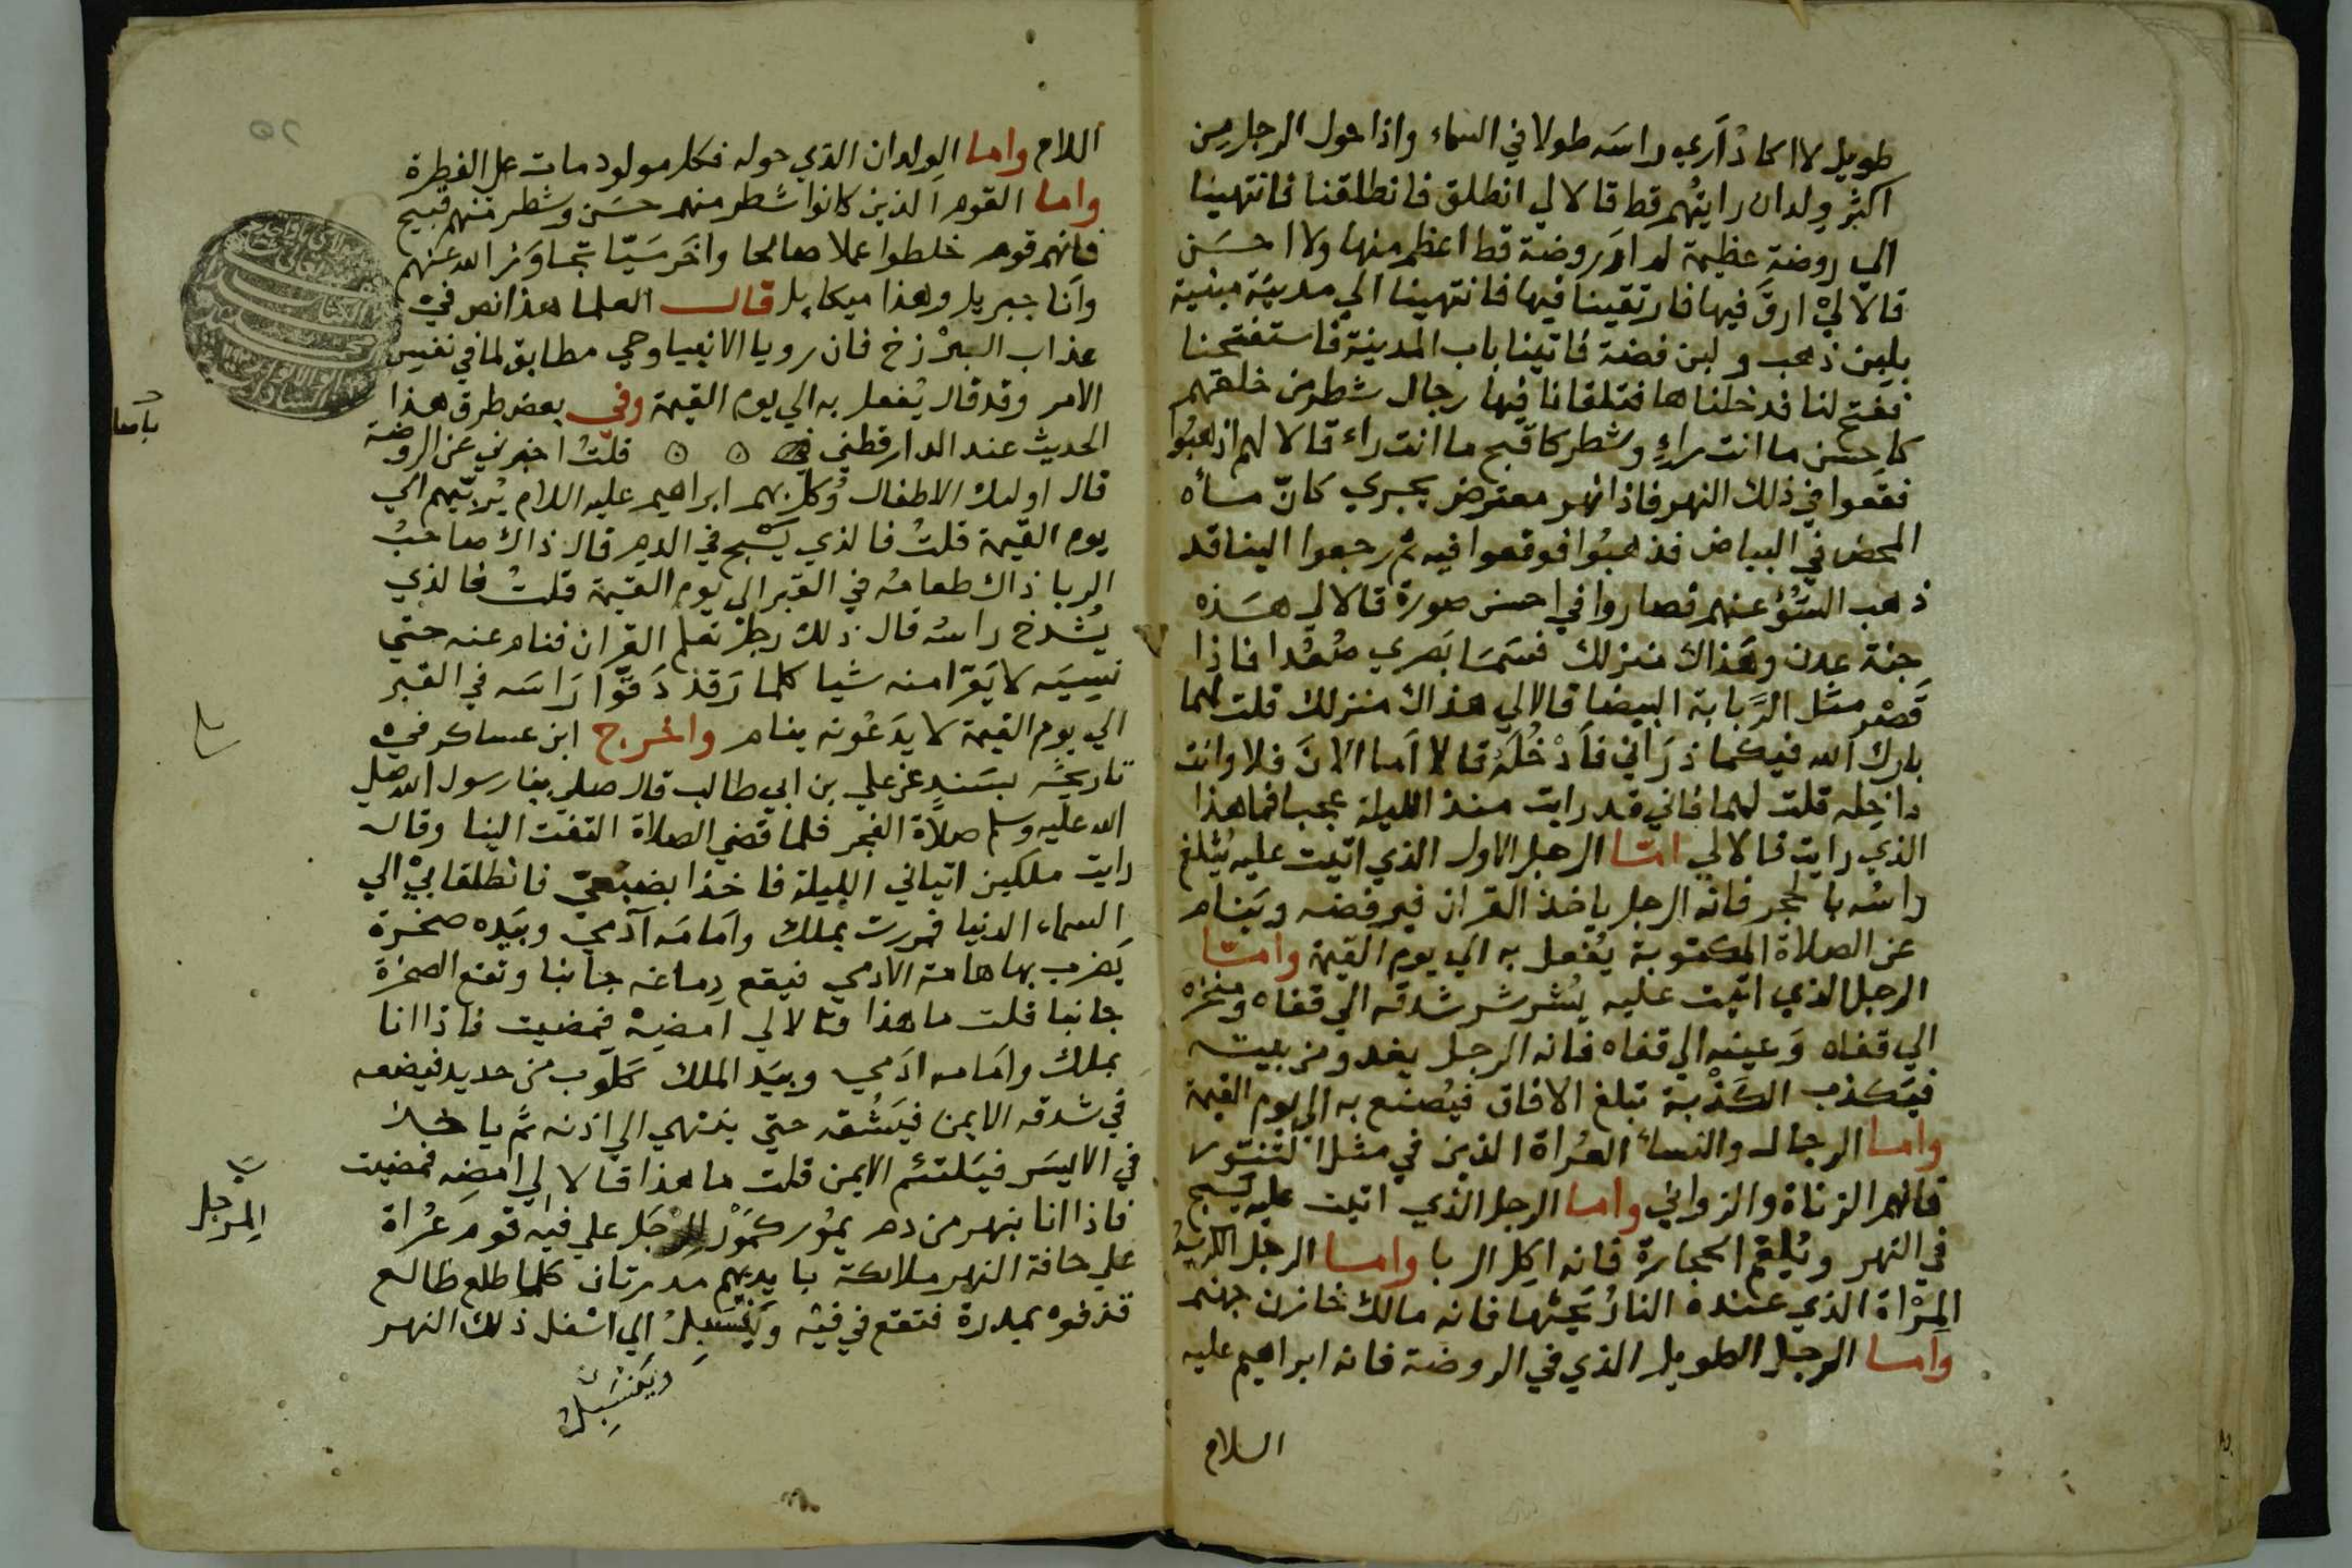 طويل لا اكاد أري راسه طولا في السماء واذا حول الرجل من
اكثر ولدان رايتهم قط قالا لي انطلق فانطلقنا فانتهينا
الي روضة عظيمة لم ار روضة قط اعظم منها ولا احسن
قالا لي ارق فيها فارتقينا فيها فانتهينا الي مدينة مبنية
بلبن ذهب ولبن فضة فاتينا باب المدينة فاستفتحنا
ففتح لنا فدخلناها فتلقانا فيها رجال شطر من خلقهم
كاحسن ما انت راء وشطر كاقبح ما انت راء قالا لهم اذهبوا
فقعوا في ذلك النهر فاذا نهر معترض يجري كانّ ماءه
المحض في البياض فذهبوا فوقعوا فيه ثم رجعوا الينا قد
ذهب السّوُ عنهم فصاروا في احسن صورة قالا لي هذه
جنة عدن وهذاك منزلك فسما بصري صُعُدا فاذا
قصر مثل الرَّبابة البيضا قالا لي هذاك منزلك قلت لهما
بارك الله فيكما ذراني فأدخله قالا اما الان فلا وانت
داخله قلت لهما فاني قد رايت منذ الليلة عجبا فما هذا
الذي رايت قالا لي امّا الرجل الاول الذي اتيت عليه يثلغ
راسه بالحجر فانه الرجل ياخذ القران فيرفضه وينام
عن الصلاة المكتوبة يفعل به الي يوم القيمة وامّا
الرجل الذي اتيت عليه يشرشر شدقه الي قفاه ومنخره
الي قفاه وعينه الي قفاه فانه الرجل يغدو من بيته
فيكذب الكذبة تبلغ الافاق فيصنع به الي يوم القيمة
واما الرجال والنساء العُراة الذين في مثل التنور
فانهم الزناة والزواني واما الرجل الذي اتيت عليه يسبح
في النهر ويُلقم الحجارة فانه اكل الربا واما الرجل الكريه
المرْاة الذي عنده النار يحثها فانه مالك خازن جهنم
واما الرجل الطويل الذي في الروضة فانه ابراهيم عليه
السلام
اللام واما الولدان الذي حوله فكل مولود مات علي الفطرة
واما القوم الذين كانوا شطر منهم حسن وشطر منهم قبيح
فانهم قوم خلطوا عملا صالحا واخر سيّا تجاوز الله عنهم
وانا جبريل وهذا ميكايل قال العلما هذا نص في
عذاب البرزخ فان رويا الانبيا وحي مطابق لما في نفس
الامر وقد قال يُفعل به الي يوم القيمة وفي بعض طرق هذا
الحديث عند الدارقطني قلتُ اخبرني عن الروضة
قال اوليك الاطفال وُكل بهم ابراهيم عليه اللام يُربّيهم الي
يوم القيمة قلتُ فالذي يسبح في الدم قال ذاك صاحبُ
الربا ذاك طعامه في القبر الي يوم القيمة قلتُ فالذي
يُشدخ راسه قال ذلك رجل تعلم القران فنام عنه حتي
نسيه لا يقرا منه شيا كلما رقد دقّوا راسه في القبر
الي يوم القيمة لا يدعونه ينام واخرج ابن عساكر في
تاريخه بسند عن علي بن ابي طالب قال صلي بنا رسول الله صلي
الله عليه وسلم صلاة الفجر فلما قضي الصلاة التفت الينا وقال
رايت ملكين اتياني الليلة فاخذا بضبعيّ فانطلقا بي الي
السماء الدنيا فمررت بملك وامامه آدمي وبيده صخرة
يضرب بها هامة الادمي فيقع دماغه جانبا وتقع الصخرة
جانبا قلت ما هذا قالا لي امضه فمضيت فاذا انا
بملك وامامه ادمي وبيد الملك كلوب من حديد فيضعه
في شدقه الايمن فيشقه حتي ينتهي الي اذنه ثم ياخذ
في الايسر فيلتئم الايمن قلت ما هذا قالا لي امضه فمضيت
فاذا انا بنهر من دم يمور كمور المرجل علي فيه قوم عُراة
علي حافة النهر ملائكة بايديهم مدرتان كلما طلع طالع
قذفوه بمدرة فتقع في فيه وينتسل الي اسفل ذلك النهر
المرجل